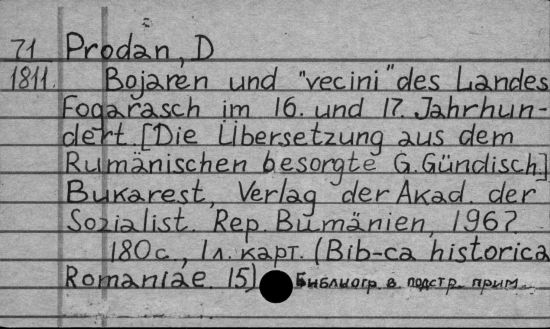 71 Prodan, D
1811. Bojaren und "vecini" des Landes
Fogarasch im 16. und 17. Jahrhun-
dert. [Die Übersetzung aus dem
Rumänischen besorgte G. Gündisch.]
Bukarest, Verlag der Akad. der
Sozialist. Rep. Bumänien, 1967.
180с., 1л. карт. (Bib-ca historica
Romaniae. 15) Библиогр. в подстр. прим.